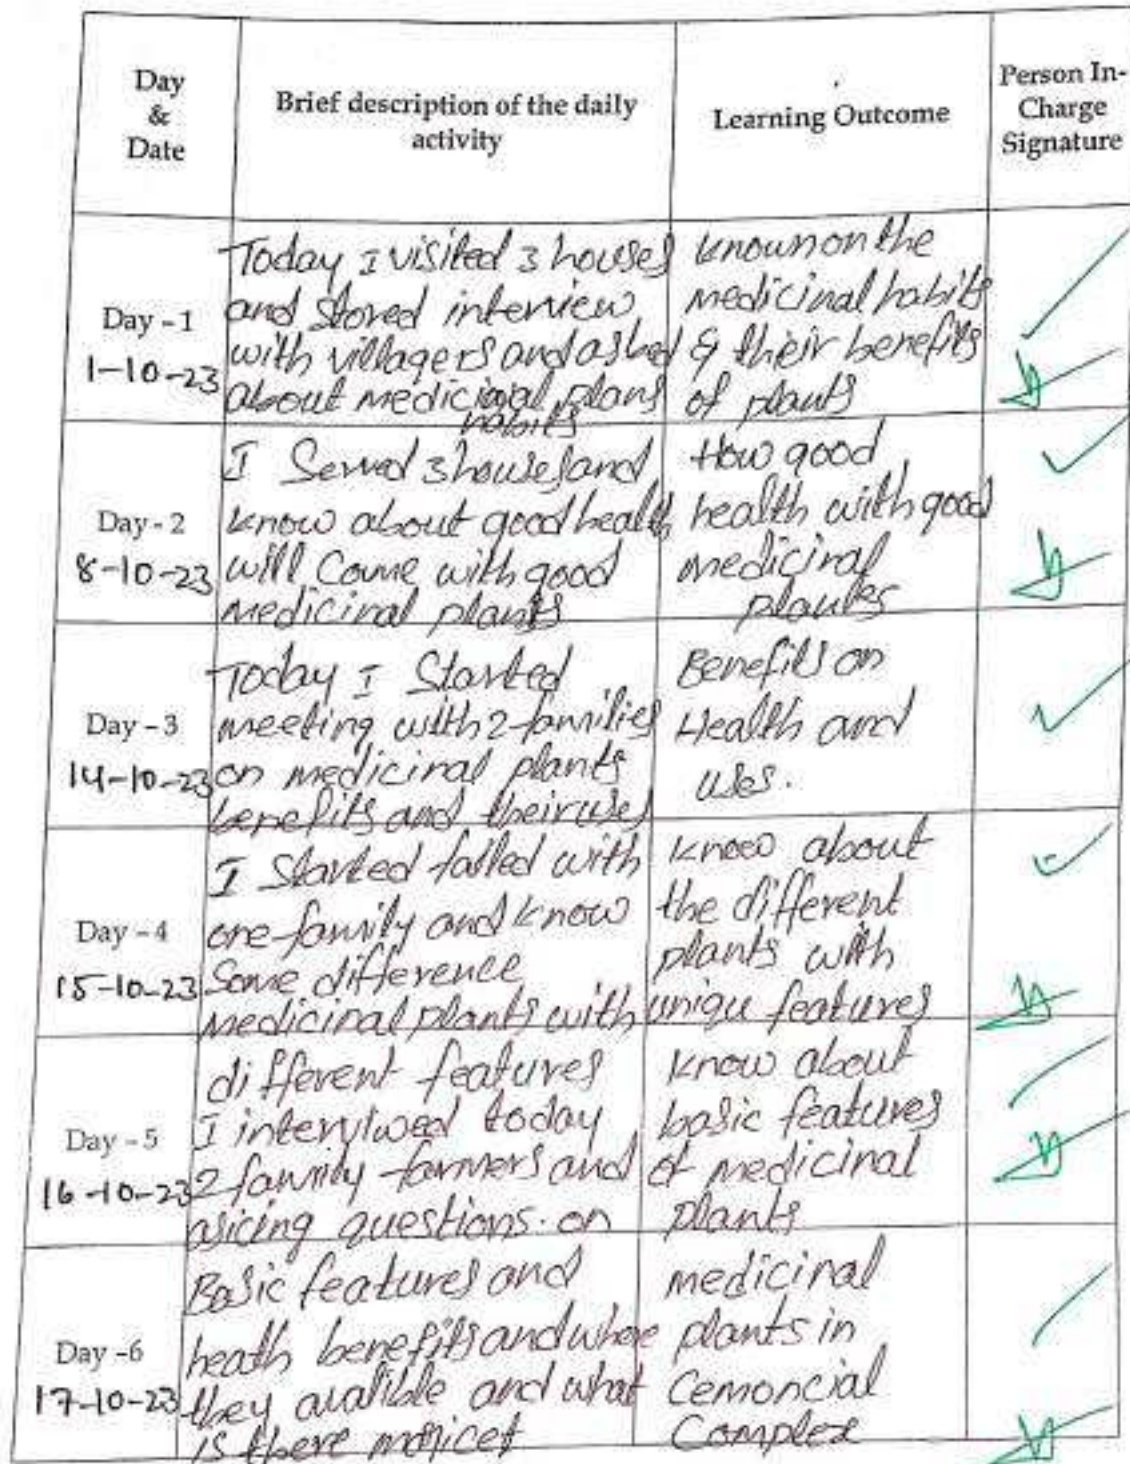 Day
&
Date
Brief description of the daily
activity
Learning Outcome
Person In-
Charge
Signature
Day - 1
1-10-23
Today I visited 3 houses
and stored interview
with villagers and asked
about medicinal plans
habits
known on the
medicinal habits
& their benefits
of plants
Day - 2
8-10-23
I Served 3 houses and
know about good health
will come with good
medicinal plants
How good
health with good
medicinal
plantes
Day - 3
14-10-23
Today I Started
meeting with 2 families
on medicinal plants
benefits and their uses
Benefits on
Health and
uses.
Day - 4
15-10-23
I Started talled with
one family and know
Some difference
medicinal plants with
know about
the different
plants with
unique features
Day - 5
16-10-23
different features
I interviwed today
2 family farmers and
asicing questions. on
know about
basic features
of medicinal
plants
Day -6
17-10-23
Basic features and
heath benefits and where
they avalible and what
is there
medicinal
plants in
Cemoncial
Complex